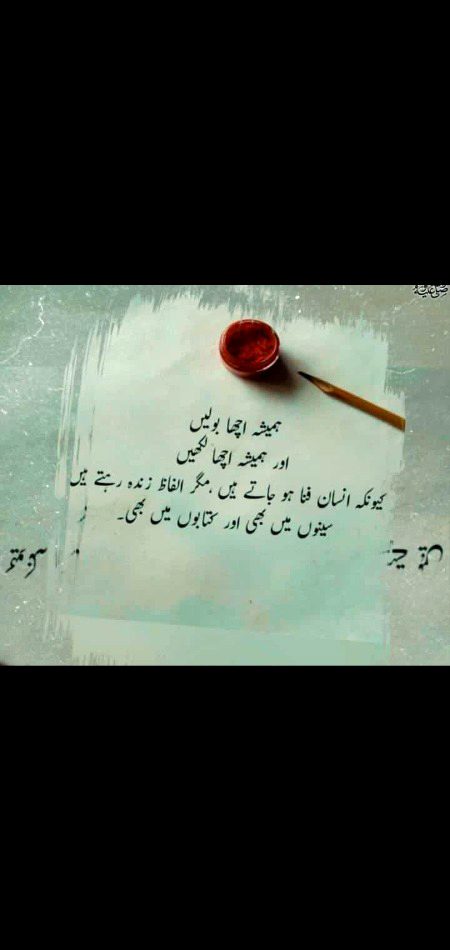 ہمیشہ اچھا بولیں
اور ہمیشہ اچھا لکھیں
کیونکہ انسان فنا ہو جاتے ہیں ،مگر الفاظ زندہ رہتے ہیں
سینوں میں بھی اور کتابوں میں بھی۔